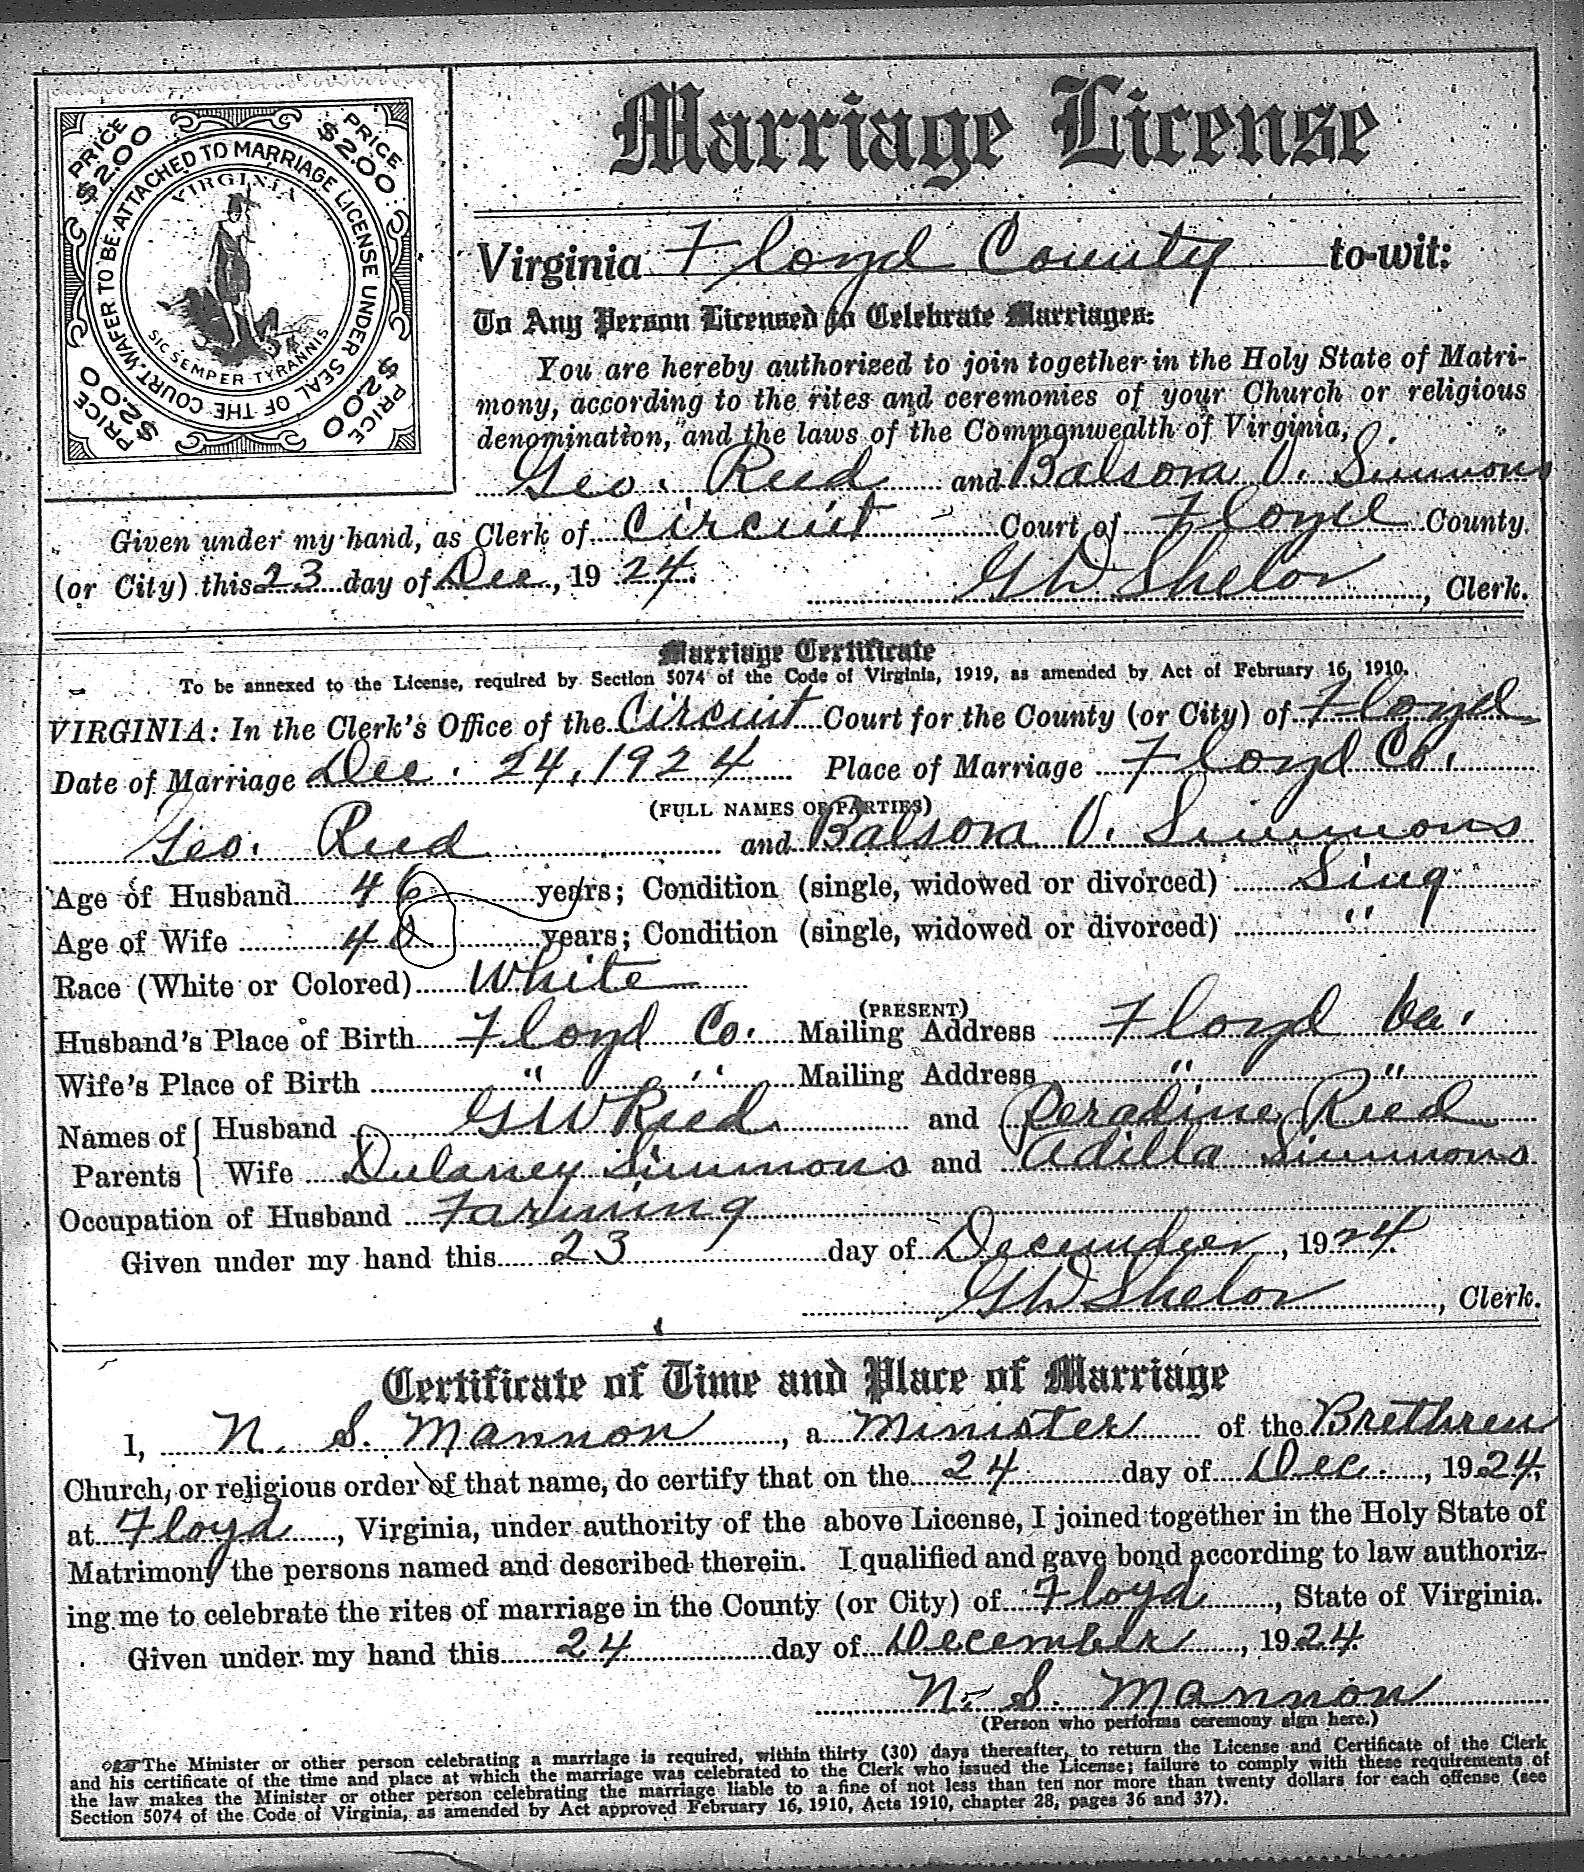 Marriage License
PRICE $2.00
PRICE $2.00
PRICE $2.00
PRICE $2.00
WAFER TO BE ATTACHED TO MARRIAGE LICENSE UNDER SEAL OF THE COURT.
VIRGINIA
SIC SEMPER TYRANNIS
Virginia Floyd County to-wit:
To Any Person Licensed to Celebrate Marriages:
You are hereby authorized to join together in the Holy State of Matri-
mony, according to the rites and ceremonies of your Church or religious
denomination, and the laws of the Commonwealth of Virginia,
Geo. Reed and Balsora V. Simmons
Given under my hand, as Clerk of Circuit Court of Floyd County.
(or City) this 23 day of Dec, 19 24. GW Shelor, Clerk.
Marriage Certificate
To be annexed to the License, required by Section 5074 of the Code of Virginia, 1919, as amended by Act of February 16, 1910.
VIRGINIA: In the Clerk's Office of the Circuit Court for the County (or City) of Floyd
Date of Marriage Dec. 24, 1924 Place of Marriage Floyd Co.
(FULL NAMES OF PARTIES)
Geo. Reed and Balsora V. Simmons
Age of Husband 46 years; Condition (single, widowed or divorced) Sing
Age of Wife 4 years; Condition (single, widowed or divorced) "
Race (White or Colored) White
(PRESENT)
Husband's Place of Birth Floyd Co. Mailing Address Floyd Va.
Wife's Place of Birth " " Mailing Address " "
Names of Parents { Husband GW Reed and Peradine Reed
Wife Dulaney Simmons and Adilla Simmons
Occupation of Husband Farming
Given under my hand this 23 day of December, 1924
GW Shelor, Clerk.
Certificate of Time and Place of Marriage
I, N. S. Mannon, a Minister of the Brethren
Church, or religious order of that name, do certify that on the 24 day of Dec., 1924,
at Floyd, Virginia, under authority of the above License, I joined together in the Holy State of
Matrimony the persons named and described therein. I qualified and gave bond according to law authoriz-
ing me to celebrate the rites of marriage in the County (or City) of Floyd, State of Virginia.
Given under my hand this 24 day of December, 1924
N. S. Mannon
(Person who performs ceremony sign here.)
The Minister or other person celebrating a marriage is required, within thirty (30) days thereafter, to return the License and Certificate of the Clerk
and his certificate of the time and place at which the marriage was celebrated to the Clerk who issued the License; failure to comply with these requirements of
the law makes the Minister or other person celebrating the marriage liable to a fine of not less than ten nor more than twenty dollars for each offense (see
Section 5074 of the Code of Virginia, as amended by Act approved February 16, 1910, Acts 1910, chapter 28, pages 36 and 37).